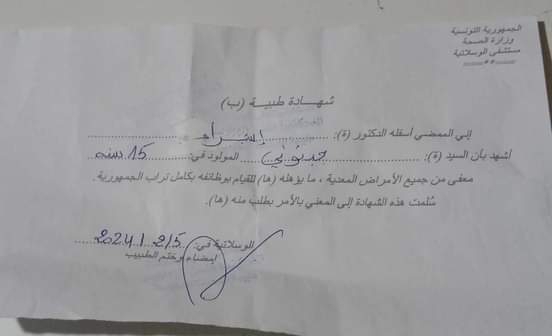 الجمهورية التونسية
وزارة الصحة
مستشفى الوسلاتية
شهادة طبية (ب)
إني الممضي أسفله الدكتور (ة): إسراء
أشهد بأن السيد (ة): المولود في: 15 سنه
معفى من جميع الأمراض المعدية ، ما يؤهله (ها) للقيام بوظائفه بكامل تراب الجمهورية .
سُلمت هذه الشهادة إلى المعني بالأمر بطلب منه (ها).
الوسلاتية في: 2024/2/5
إمضاء وختم الطبيب